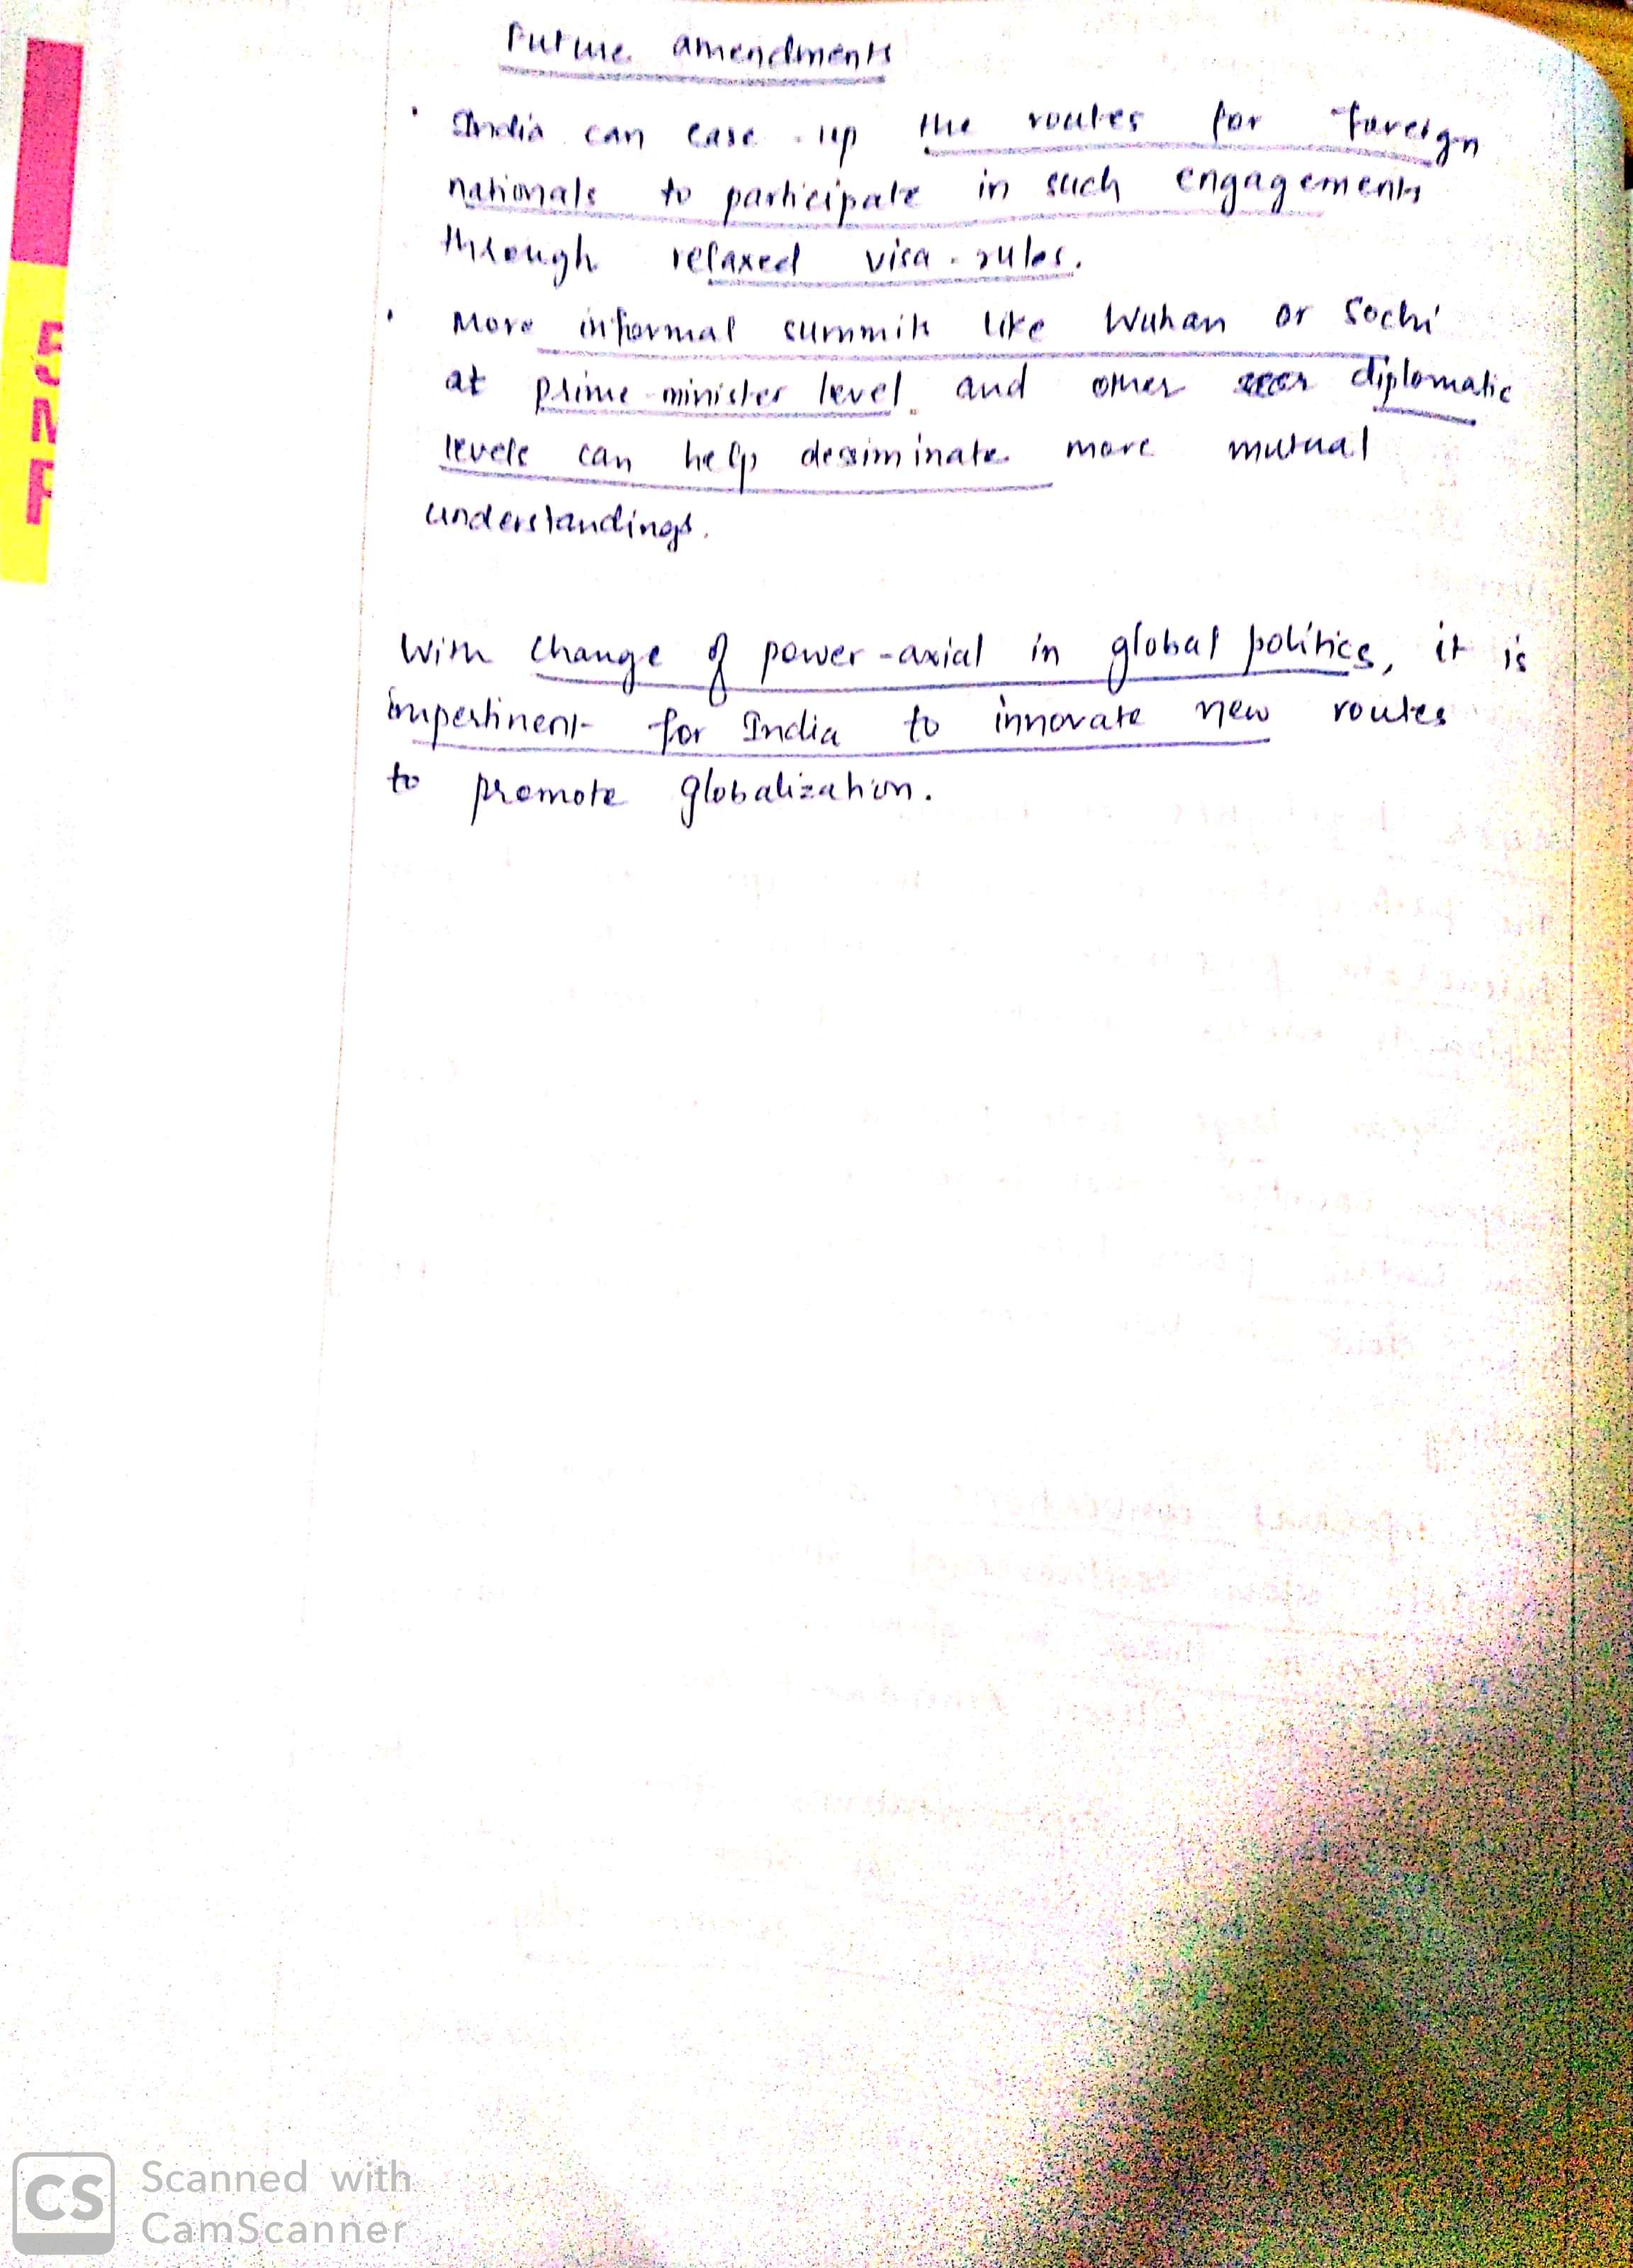 Future amendments
· India can ease-up the routes for foreign
nationals to participate in such engagements
through relaxed visa-rules.
· More informal summits like Wuhan or Sochi
at prime-minister level and other diplomatic
levels can help dessiminate more mutual
understandings.
With change of power-axial in global politics, it is
impertinent for India to innovate new routes
to promote globalization.
CS Scanned with
CamScanner